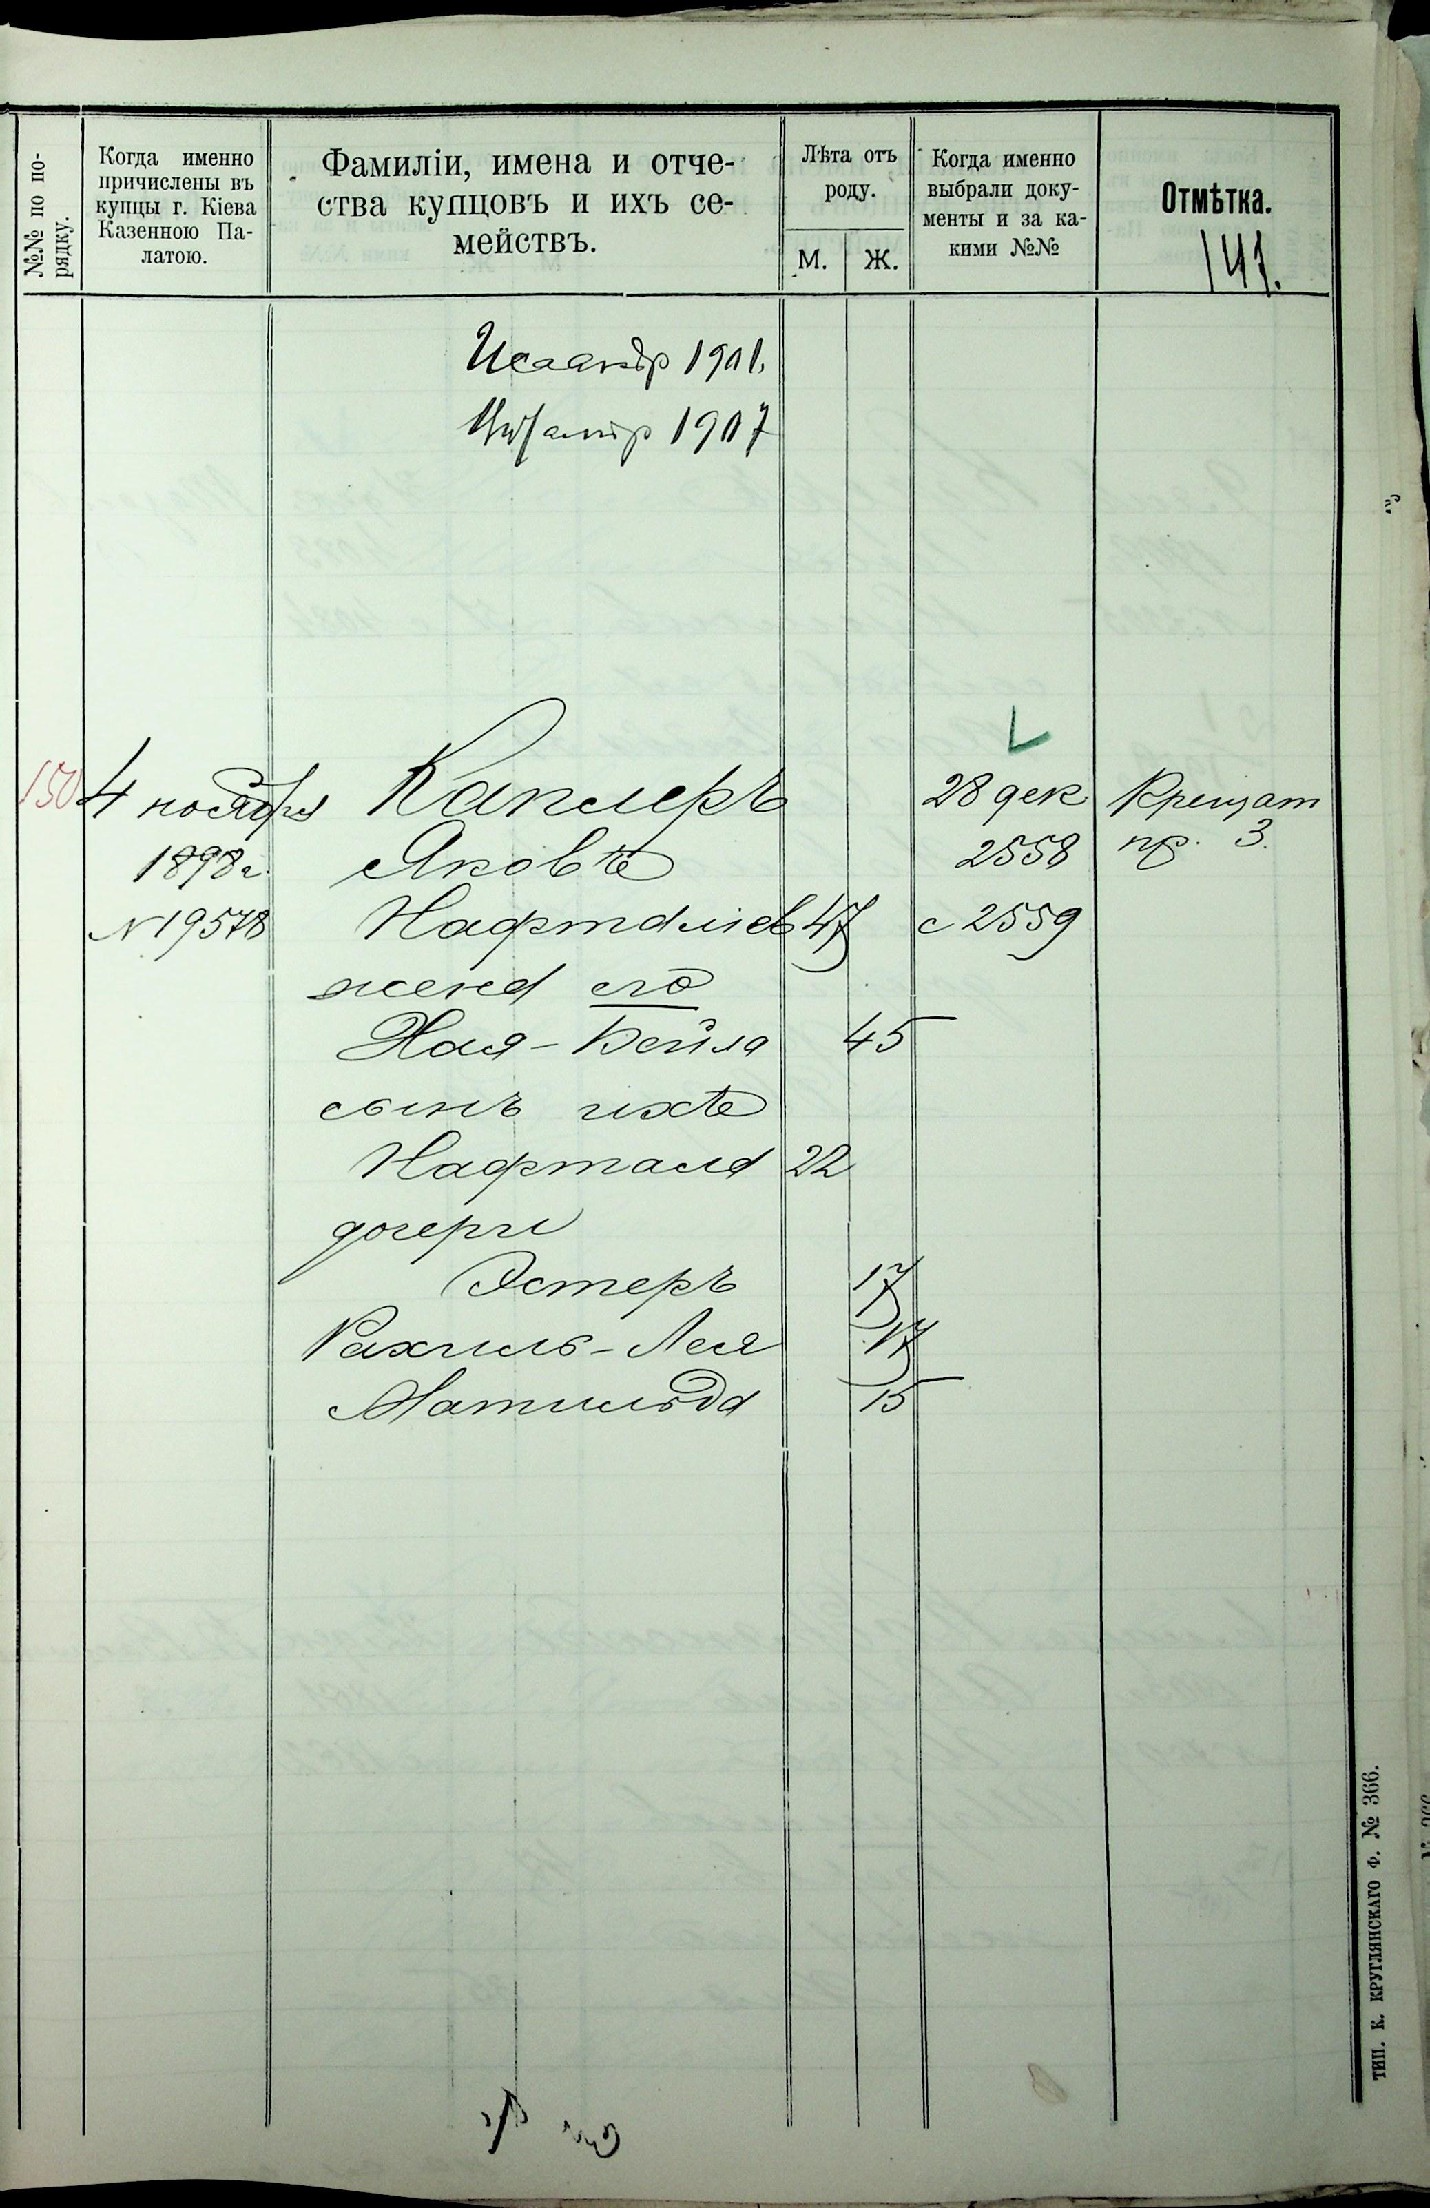 №№ по по-
рядку.
Когда именно
причислены въ
купцы г. Кіева
Казенною Па-
латою.
Фамиліи, имена и отче-
ства купцовъ и ихъ се-
мействъ.
Лѣта отъ
роду.
М.
Ж.
Когда именно
выбрали доку-
менты и за ка-
кими №№
Отмѣтка.
141.
Исаакъ р 1901.
р 1907
150 4 ноября Каплеръ 28 дек Крещат
1898 г. Яковъ 2558 пр. 3.
№ 19578 Нафталіев 47 с 2559
жена его
Хая-Бейла 45
сынъ ихъ
Нафтала 22
дочери
Эстеръ 17
Рахиль-Лея 17
Матильда 15
ТИП. К. КРУГЛЯНСКАГО Ф. № 366.